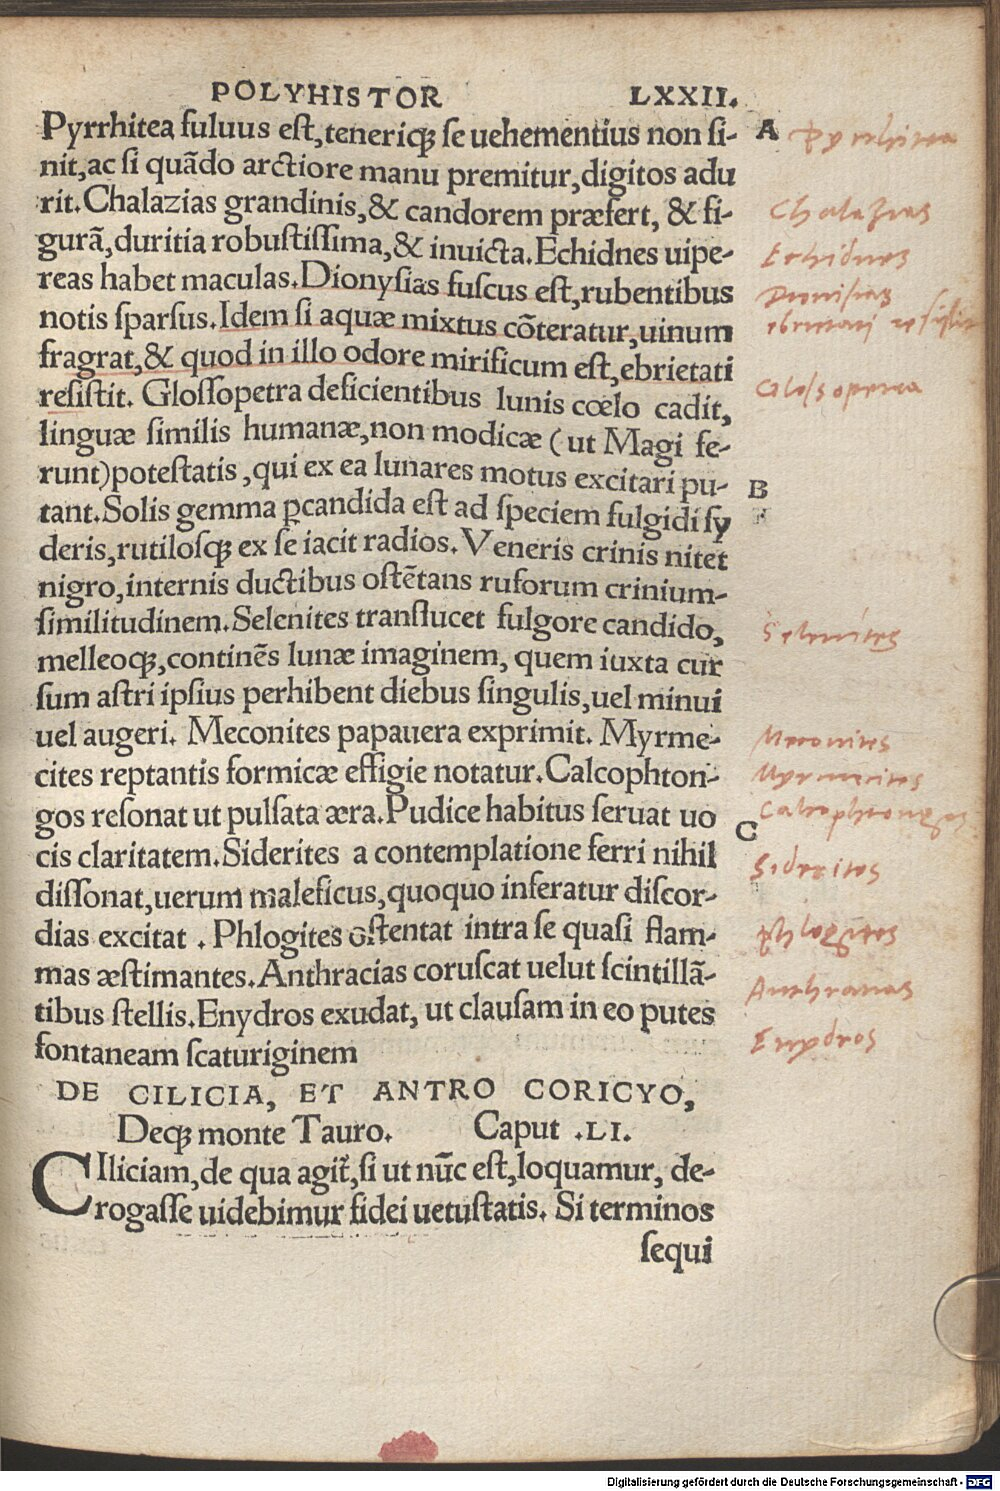 POLYHISTOR LXXII.
Pyrrhitea fuluus eſt,teneriqꝫ ſe uehementius non ſi- A
Pyrrhitea
nit,ac ſi quãdo arctiore manu premitur,digitos adu
rit.Chalazias grandinis,& candorem præfert, & fi-
Chalazias
gurã,duritia robuſtiſſima,& inuicta.Echidnes uipe-
Echidnes
reas habet maculas.Dionyſias fuſcus eſt,rubentibus
Dionisias
notis ſparſus.Idem ſi aquæ mixtus cõteratur,uinum
ebrietati resistit
fragrat,& quod in illo odore mirificum eſt,ebrietati
reſiſtit. Gloſſopetra deficientibus lunis cœlo cadit,
linguæ ſimilis humanæ,non modicæ (ut Magi fe-
runt)poteſtatis,qui ex ea lunares motus excitari pu- B
tant.Solis gemma ꝑcandida eſt ad ſpeciem fulgidi ſy
deris,rutiloſqꝫ ex ſe iacit radios.Veneris crinis nitet
nigro,internis ductibus oſtẽtans ruforum crinium-
ſimilitudinem.Selenites tranſlucet fulgore candido,
Selenites
melleoqꝫ,continẽs lunæ imaginem, quem iuxta cur
ſum aſtri ipſius perhibent diebus ſingulis,uel minui
uel augeri. Meconites papauera exprimit. Myrme-
Meconites
cites reptantis formicæ effigie notatur.Calcophton-
Myrmecites
gos reſonat ut pulſata æra.Pudice habitus ſeruat uo C
Calcophtongos
cis claritatem.Siderites a contemplatione ferri nihil
Siderites
diſſonat,uerum maleficus,quoquo inferatur diſcor-
dias excitat . Phlogites oſtentat intra ſe quaſi flam-
Phlogites
mas æſtimantes.Anthracias coruſcat uelut ſcintillã-
Anthracias
tibus ſtellis.Enydros exudat, ut clauſam in eo putes
Enydros
fontaneam ſcaturiginem
DE CILICIA, ET ANTRO CORICYO,
Deqꝫ monte Tauro. Caput .LI.
CIliciam,de qua agit̃,ſi ut nũc eſt,loquamur, de-
rogaſſe uidebimur fidei uetuſtatis. Si terminos
ſequi
Digitalisierung gefördert durch die Deutsche Forschungsgemeinschaft - DFG